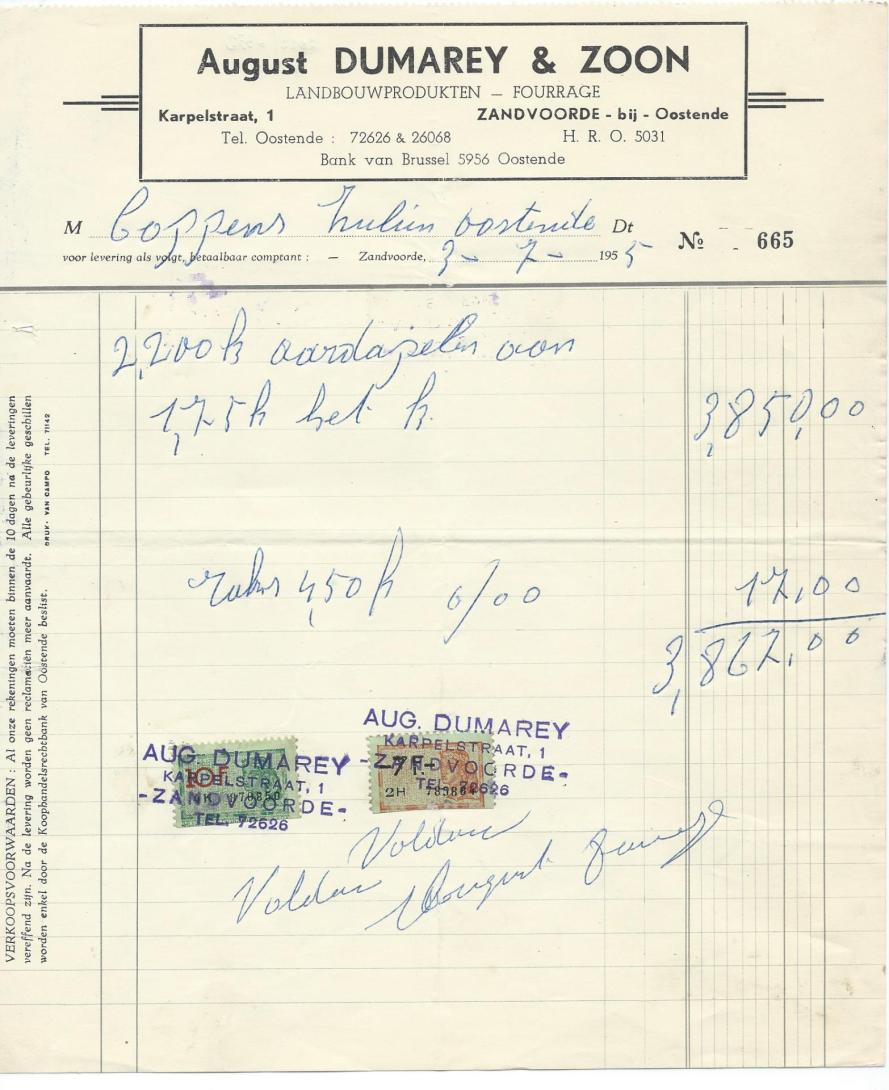 August DUMAREY & ZOON
LANDBOUWPRODUKTEN — FOURRAGE
Karpelstraat, 1 ZANDVOORDE - bij - Oostende
Tel. Oostende : 72626 & 26068 H. R. O. 5031
Bank van Brussel 5956 Oostende
M Coppens oostende Dt
No 665
voor levering als volgt, betaalbaar comptant : — Zandvoorde, 3 - 7 - 1955
2,200 k aardapelen aan
1,75 k het k. 3,850,00
4,50 k 0/00 17,00
3,867,00
AUG. DUMAREY
KARPELSTRAAT, 1
-ZANDVOORDE-
TEL. 72626
10F
AUG. DUMAREY
KARPELSTRAAT, 1
-ZANDVOORDE-
TEL. 72626
7F.-
2H
Voldaan
Voldaan August
VERKOOPSVOORWAARDEN : Al onze rekeningen moeten binnen de 10 dagen na de leveringen
vereffend zijn. Na de levering worden geen reclamatiën meer aanvaardt. Alle gebeurlijke geschillen
worden enkel door de Koophandelsrechtebank van Oostende beslist.
DRUK. VAN CAMPO TEL. 71142